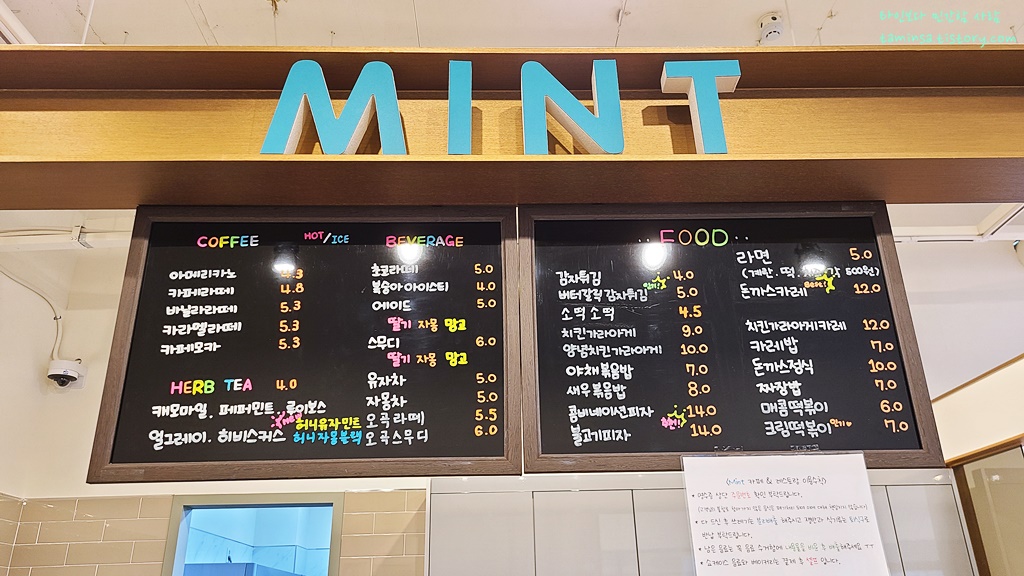 MINT
COFFEE HOT/ICE
아메리카노 4.3
카페라떼 4.8
바닐라라떼 5.3
카라멜라떼 5.3
카페모카 5.3
HERB TEA 4.0
캐모마일. 페퍼민트. 루이보스
얼그레이. 히비스커스
허니유자민트
허니자몽블랙
BEVERAGE
초코라떼 5.0
복숭아 아이스티 4.0
에이드 5.0
딸기 자몽 망고
스무디 6.0
딸기 자몽 망고
유자차 5.0
자몽차 5.0
오곡라떼 5.5
오곡스무디 6.0
FOOD
감자튀김 인기! 4.0
버터갈릭감자튀김 5.0
소떡소떡 4.5
치킨가라아게 9.0
양념치킨가라아게 10.0
야채볶음밥 7.0
새우볶음밥 8.0
콤비네이션피자 14.0
불고기피자 14.0
라면 5.0
(계란. 떡. 500원)
돈까스카레 Best! 12.0
치킨가라아게카레 12.0
카레밥 7.0
돈까스정식 10.0
짜장밥 7.0
매콤떡볶이 6.0
크림떡볶이 인기 7.0
(Mint 카페 & 레스토랑 이용수칙)
영수증 상단 주문번호 확인 부탁드립니다.
반납 부탁드립니다.